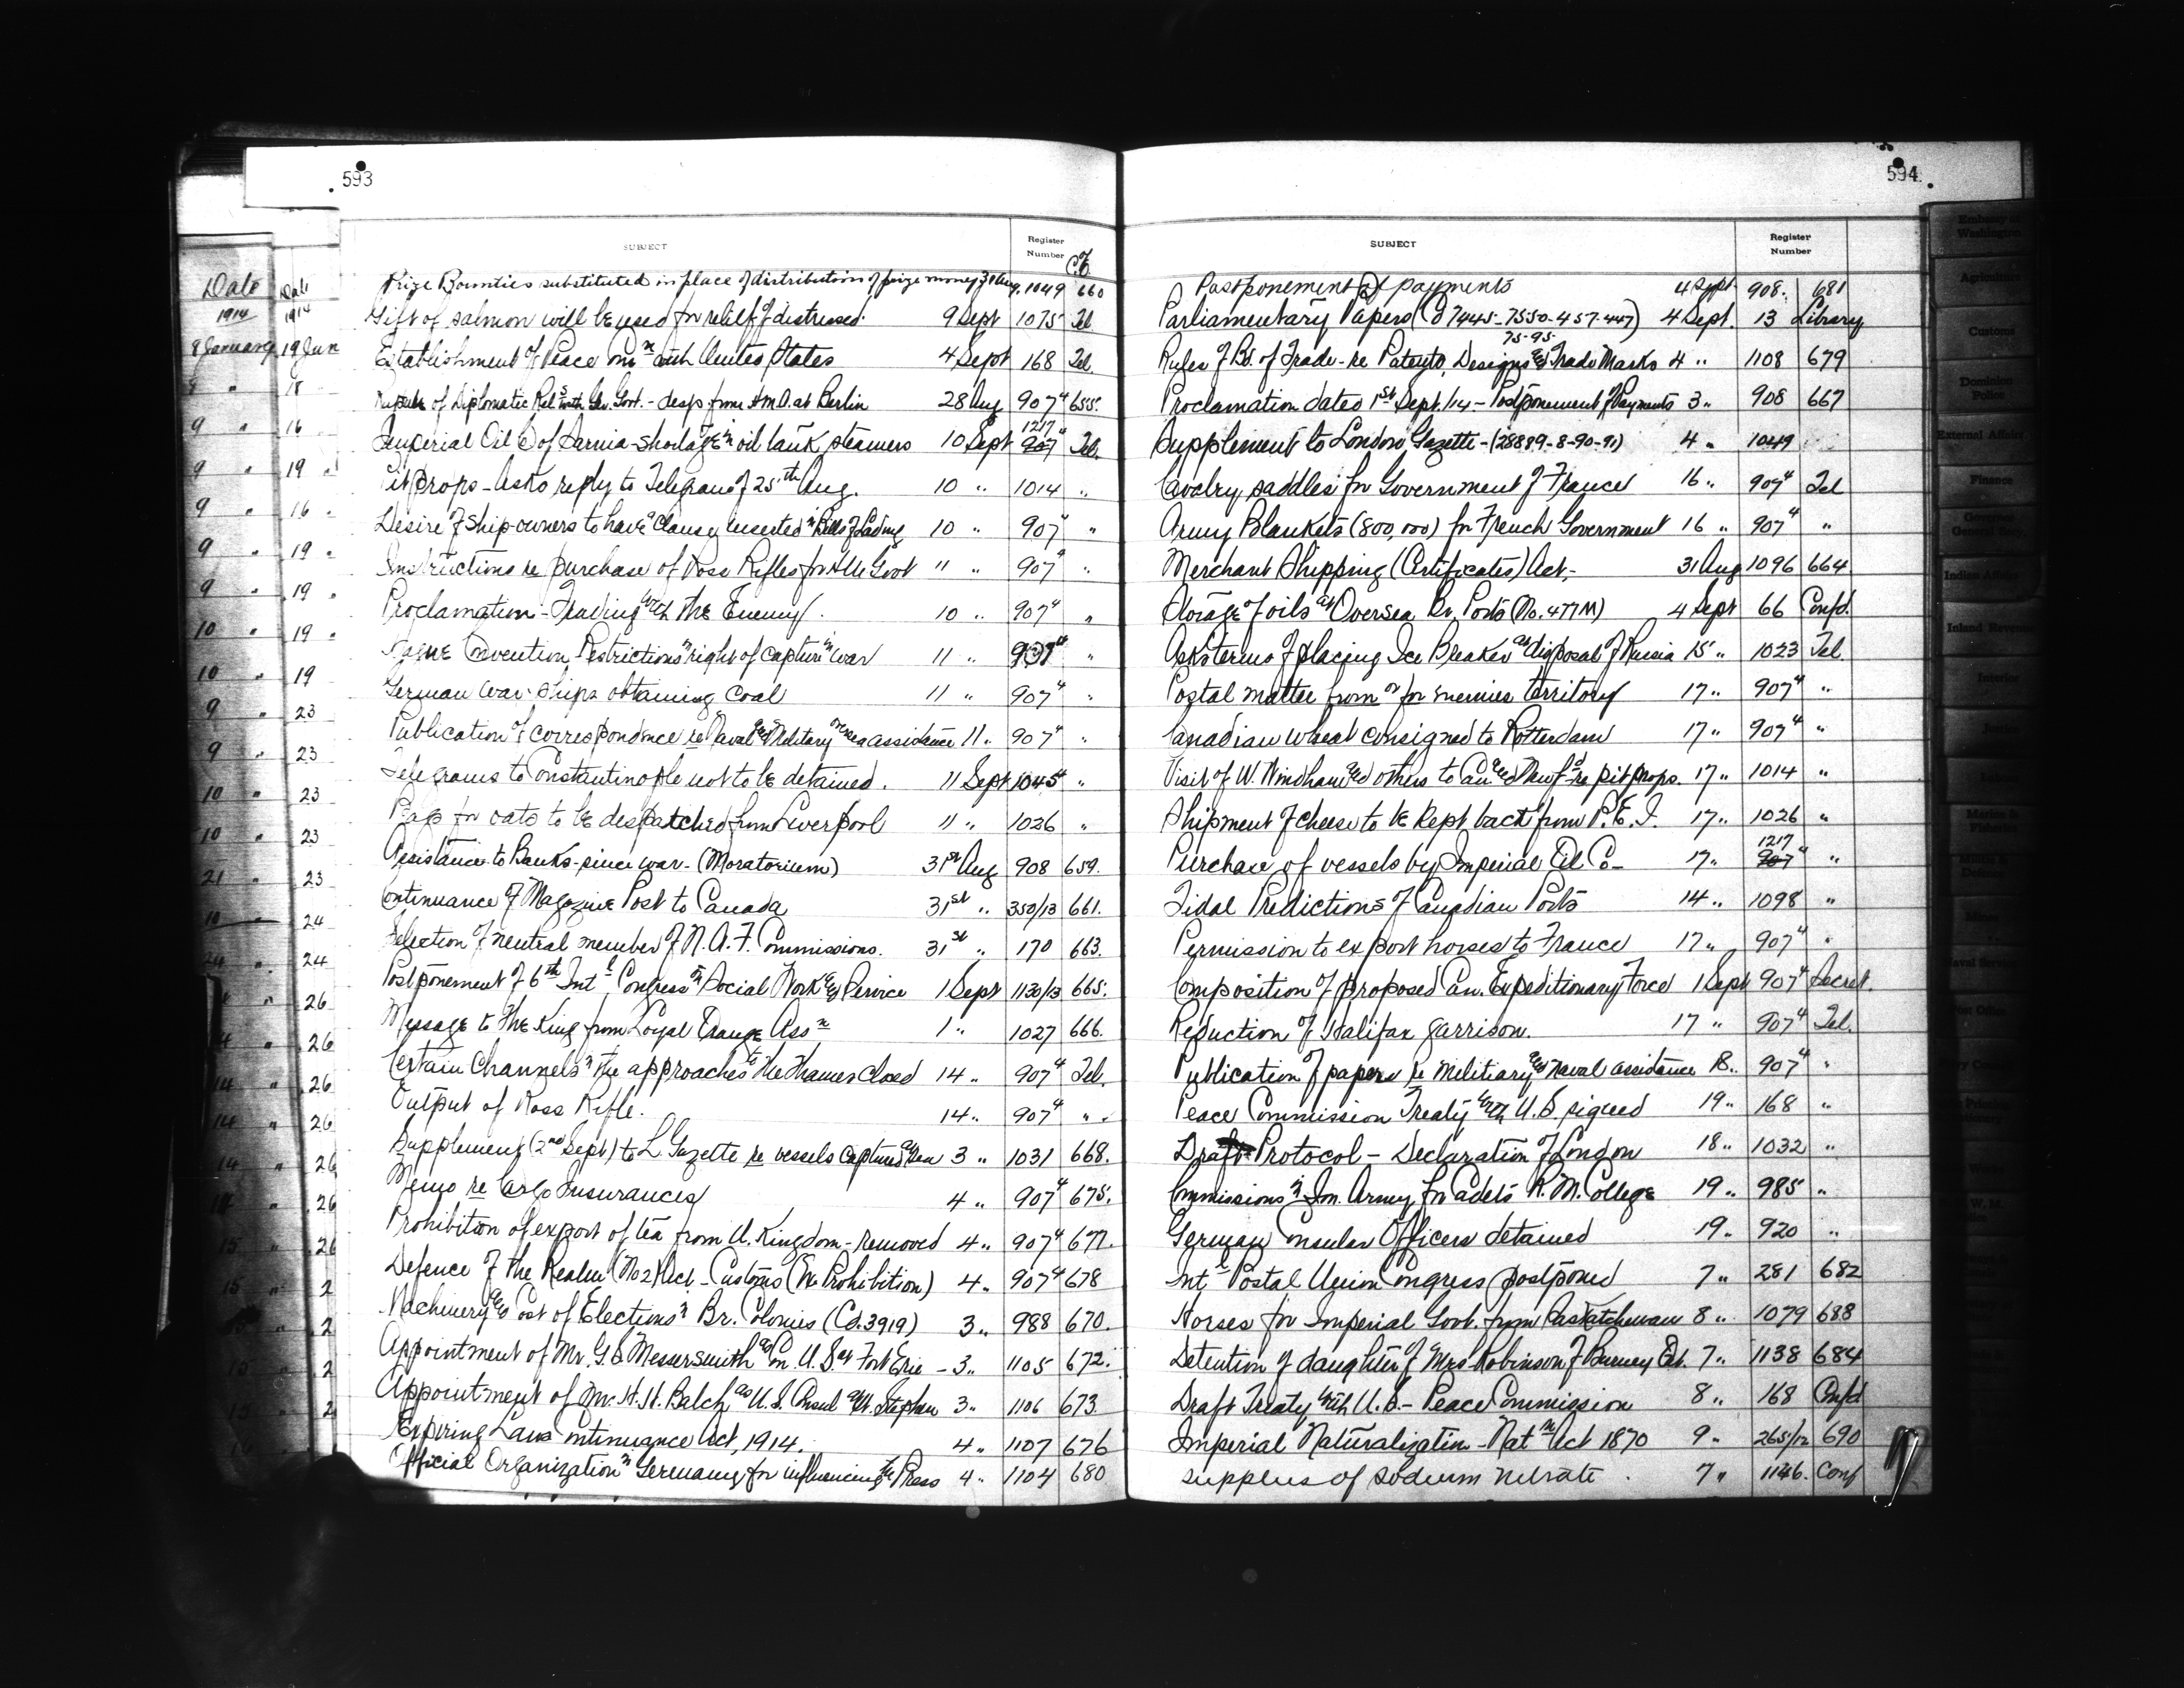 593
SUBJECT Register Number C.O.
Date Date
1914 1914
8 January 19 Jun
Prize Bounties substituted in place of distribution of prize money 31 Aug. 1049 660
Gift of salmon will be used for relief of distressed. 9 Sept 1075 Tel
Establishment of Peace Comn with United States 4 Sept 168 Tel.
Rupture of Diplomatic Rels with Ger. Govt. - desp. from H.M.A. at Berlin 28 Aug 907⁴ 655.
Imperial Oil Co of Sarnia - shortage in oil tank steamers 10 Sept 1217 907⁴ Tel.
Pit props - Asks reply to Telegram of 25th Aug. 10 " 1014 "
Desire of Ship-owners to have "Clause" inserted in Bills of Lading 10 " 907⁴ "
Instructions re purchase of Ross Rifles for HM Govt 11 " 907⁴ "
Proclamation - Trading with the Enemy. 10 " 907⁴ "
Hague Convention, Restrictions in right of capture in war 11 " 907⁴ "
German war-ships obtaining coal 11 " 907⁴ "
Publication of correspondence re Naval and Military oversea assistance 11 " 907⁴ "
Telegrams to Constantinople not to be detained. 11 Sept 1045 "
Bags for oats to be despatched from Liverpool 11 " 1026 "
Assistance to Banks since war - (Moratorium) 31st Aug 908 659.
Continuance of Magazine Post to Canada 31st " 350/13 661.
Selection of neutral member of N.A.F. Commissions. 31st " 170 663.
Postponement of 6th Intl Congress on Social Work and Service 1 Sept 1130/13 665.
Message to the King from Loyal Orange Assn 1 " 1027 666.
Certain Channels in the approaches to the Thames closed 14 " 907⁴ Tel.
Output of Ross Rifle. 14 " 907⁴ "
Supplement (2nd Sept) to L. Gazette re vessels captured at sea 3 " 1031 668.
Memo re Cargo Insurances 4 " 907⁴ 675.
Prohibition of export of tea from U. Kingdom - removed 4 " 907⁴ 677.
Defence of the Realm (No 2) Act - Customs (Ex Prohibition) 4 " 907⁴ 678
Machinery and Cost of Elections in Br. Colonies (Cd. 3919) 3 " 988 670.
Appointment of Mr. G.S. Messersmith as Con. U.S. at Fort Erie - 3 " 1105 672.
Appointment of Mr. H.H. Balch as U.S. Consul at St. Stephen 3 " 1106 673.
Expiring Laws Continuance Act, 1914. 4 " 1107 676
Official Organization in Germany for influencing the Press 4 " 1104 680
594
SUBJECT Register Number
Postponement of payments 4 Sept 908. 681
Parliamentary Papers (Cd 7445-7550-457-447) 4 Sept. 13 Library
75-95-
Rules of Bd. of Trade - re Patents, Designs and Trade Marks 4 " 1108 679
Proclamation dated 1st Sept. /14 - Postponement of Payments 3 " 908 667
Supplement to London Gazette - (28889-8-90-91) 4 " 1049
Cavalry saddles for Government of France 16 " 907⁴ Tel
Army Blankets (800,000) for French Government 16 " 907⁴ "
Merchant Shipping (Certificates) Act, - 31 Aug 1096 664
Storage of oils at Oversea Br. Ports (No. 477 M) 4 Sept 66 Confd.
Asks terms of placing Ice Breaker at disposal of Russia 15 " 1023 Tel.
Postal matter from or for enemies territory 17 " 907⁴ "
Canadian wheat consigned to Rotterdam 17 " 907⁴ "
Visit of W. Windham and others to Can. and Newfd re pit props. 17 " 1014 "
Shipment of cheese to be kept back from P.E.I. 17 " 1026 "
Purchase of vessels by Imperial Oil Co - 17 " 1217 907⁴ "
Tidal Predictions of Canadian Ports 14 " 1098 "
Permission to export horses to France 17 " 907⁴ "
Composition of proposed Can. Expeditionary Force 1 Sept 907⁴ Secret.
Reduction of Halifax garrison. 17 " 907⁴ Tel.
Publication of papers re Military and Naval assistance 18 " 907⁴ "
Peace Commission Treaty with U.S. signed 19 " 168 "
Draft Protocol - Declaration of London 18 " 1032 "
Commissions in Im. Army for cadets R.M. College 19 " 985 "
German Consular Officers detained 19 " 920 "
Intl Postal Union Congress postponed 7 " 281 682
Horses for Imperial Govt. from Saskatchewan 8 " 1079 688
Detention of daughter of Mrs Robinson of Burney Est. 7 " 1138 684
Draft Treaty with U.S. - Peace Commission 8 " 168 Confd
Imperial Naturalization - Natn Act 1870 9 " 265/12 690
supplies of sodium nitrate. 7 " 1146. Conf